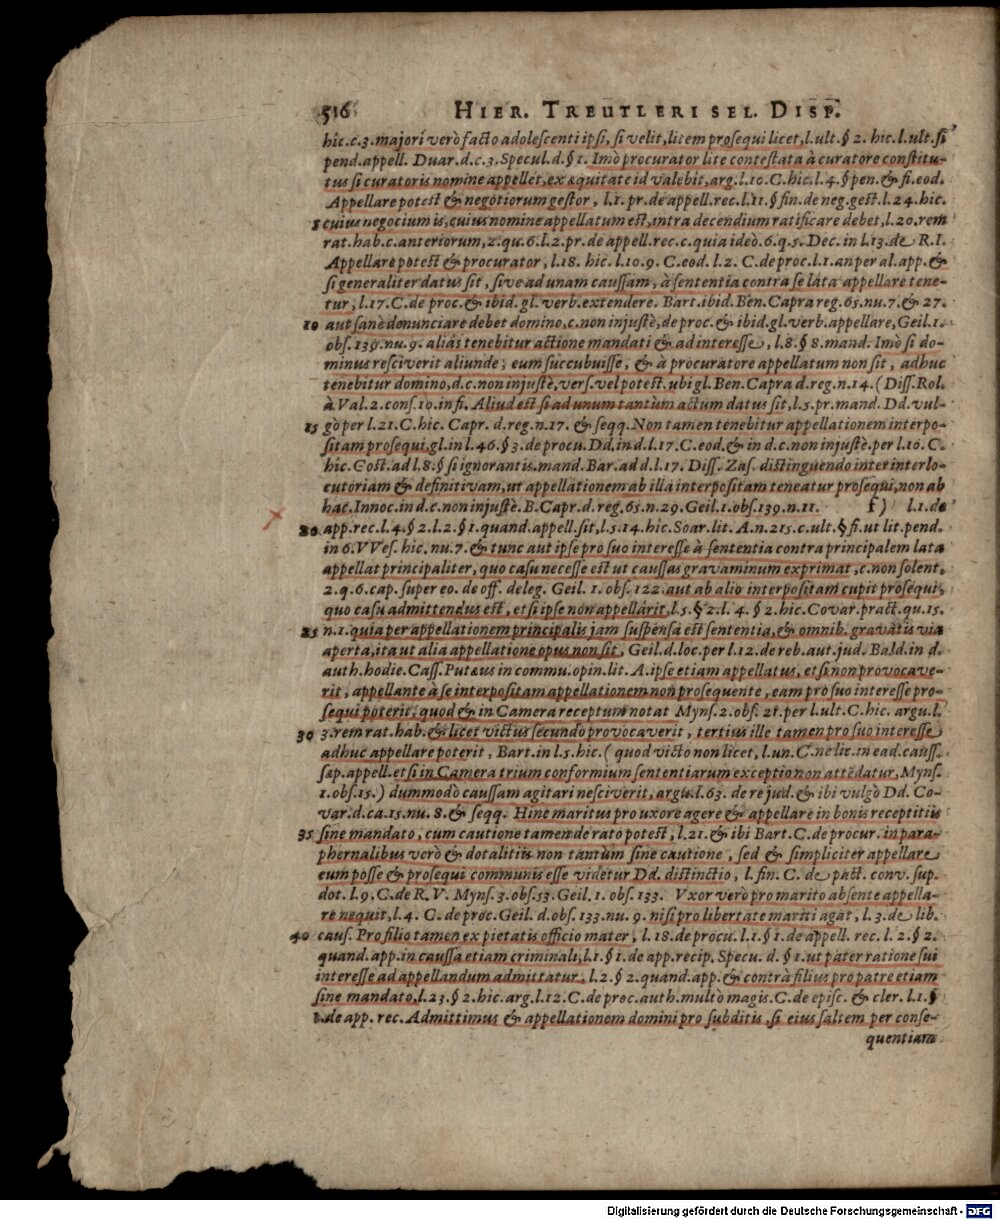 516 HIER. TREUTLERI SEL. DISP.
hîc. c. 3. majori verò facto adolescenti ipsi, si velit, litem prosequi licet, l. ult. § 2. hic. l. ult. si
pend. appell. Duar. d. c. 3. Specul. d. § 1. Imò procurator lite contestata à curatore constitu-
tus si curatoris nomine appellet, ex æquitate id valebit, arg. l. 10. C. hic. l. 4. § pen. & fi. eod.
Appellare potest & negotiorum gestor, l. 1. pr. de appell. rec. l. 11. § fin. de neg. gest. l. 24. hic.
5 cuius negocium is, cuius nomine appellatum est, intra decendium ratificare debet, l. 20. rem
rat. hab. c. anteriorum, 2. qu. 6. l. 2. pr. de appell. rec. c. quia ideò. 6. q. 5. Dec. in l. 13. de R. I.
Appellare potest & procurator, l. 18. hic. l. 10. 9. C. eod. l. 2. C. de proc. l. 1. an per al. app. &
si generaliter datus sit, sive ad unam caussam, à sententia contra se lata appellare tene-
tur, l. 17. C. de proc. & ibid. gl. verb. extendere. Bart. ibid. Ben. Capra reg. 65. nu. 7. & 27.
10 aut sanè denunciare debet domino, c. non injustè, de proc. & ibid. gl. verb. appellare, Geil. 1.
obs. 139. nu. 9. aliàs tenebitur actione mandati & ad interesse, l. 8. § 8. mand. Imò si do-
minus resciverit aliunde; eum succubuisse, & à procuratore appellatum non sit, adhuc
tenebitur domino, d. c. non injustè, vers. vel potest. ubi gl. Ben. Capra d. reg. n. 14. (Diss. Rol.
à Val. 2. cons. 10. in fi. Aliud est si ad unum tantùm actum datus sit, l. 5. pr. mand. Dd. vul-
15 gò per l. 21. C. hic. Capr. d. reg. n. 17. & seqq. Non tamen tenebitur appellationem interpo-
sitam prosequi, gl. in l. 46. § 3. de procu. Dd. in d. l. 17. C. eod. & in d. c. non injustè. per l. 16. C.
hic. Cost. ad l. 8. § si ignorantis. mand. Bar. ad d. l. 17. Diss. Zas. distinguendo inter interlo-
cutoriam & definitivam, ut appellationem ab illa interpositam teneatur prosequi, non ab
hac. Innoc. in d. c. non injustè. B. Capr. d. reg. 65. n. 29. Geil. 1. obs. 139. n. 11. f) l. 1. de
20 app. rec. l. 4. § 2. l. 2. § 1. quand. appell. sit, l. 5. 14. hic. Soar. lit. A. n. 215. c. ult. § fi. ut lit. pend.
in 6. VVes. hic. nu. 7. & tunc aut ipse pro suo interesse à sententia contra principalem lata
appellat principaliter, quo casu necesse est ut caussas gravaminum exprimat, c. non solent,
2. q. 6. cap. super eo. de off. deleg. Geil. 1. obs. 122. aut ab alio interpositam cupit prosequi,
quo casu admittendus est, etsi ipse non appellarit, l. 5. § 2. l. 4. § 2. hic. Covar. pract. qu. 15.
25 n. 1. quia per appellationem principalis jam suspensa est sententia, & omnib. gravatis via
aperta, ita ut alia appellatione opus non sit, Geil. d. loc. per l. 12. de reb. aut. jud. Bald. in d.
auth. hodie. Cass. Puteus in commu. opin. lit. A. ipse etiam appellatus, etsi non provocave-
rit, appellante à se interpositam appellationem non prosequente, eam pro suo interesse pro-
sequi poterit, quod & in Camera receptum notat Myns. 2. obs. 21. per l. ult. C. hic. argu. l.
30 3. rem rat. hab. & licet victus secundò provocaverit, tertius ille tamen pro suo interesse
adhuc appellare poterit, Bart. in l. 5. hic. (quod victo non licet, l. un. C. ne lic. in ead. causs.
sæp. appell. etsi in Camera trium conformium sententiarum exceptio non attēdatur, Myns.
1. obs. 15.) dummodò caussam agitari nesciverit, argu. l. 63. de re jud. & ibi vulgò Dd. Co-
var. d. ca. 15. nu. 8. & seqq. Hinc maritus pro uxore agere & appellare in bonis receptitiis
35 sine mandato, cum cautione tamen de rato potest, l. 21. & ibi Bart. C. de procur. in para-
phernalibus verò & dotalitiis non tantùm sine cautione, sed & simpliciter appellare
eum posse & prosequi communis esse videtur Dd. distinctio, l. fin. C. de pact. conv. sup.
dot. l. 9. C. de R. V. Myns. 3. obs. 53. Geil. 1. obs. 133. Vxor verò pro marito absente appella-
re nequit, l. 4. C. de proc. Geil. d. obs. 133. nu. 9. nisi pro libertate mariti agat, l. 3. de lib.
40 caus. Pro filio tamen ex pietatis officio mater, l. 18. de procu. l. 1. § 1. de appell. rec. l. 2. § 2.
quand. app. in caussa etiam criminali, l. 1. § 1. de app. recip. Specu. d. § 1. ut pater ratione sui
interesse ad appellandum admittatur. l. 2. § 2. quand. app. & contrà filius pro patre etiam
sine mandato, l. 23. § 2. hic. arg. l. 12. C. de proc. auth. multò magis. C. de episc. & cler. l. 1. §
1. de app. rec. Admittimus & appellationem domini pro subditis, si eius saltem per conse-
quentiam
Digitalisierung gefördert durch die Deutsche Forschungsgemeinschaft - DFG